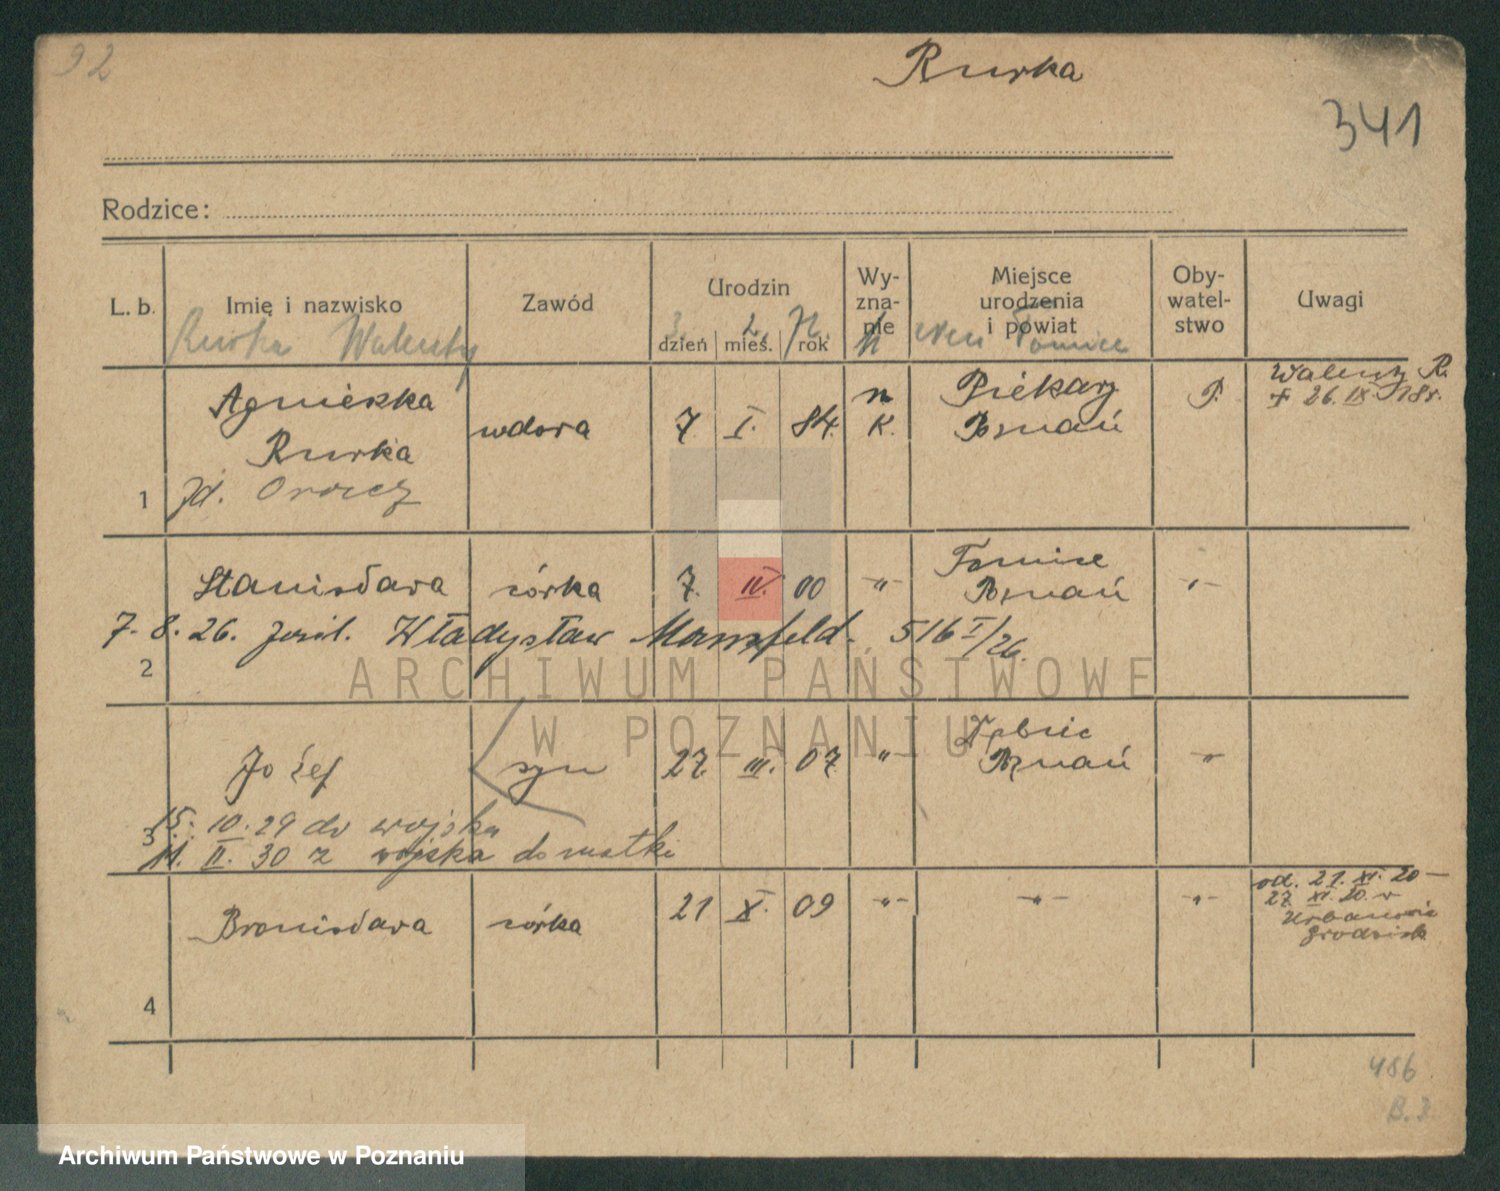 92
Rurka
341
Rodzice:
L. b. Imię i nazwisko Zawód Urodzin dzień mieś. rok Wy-zna-nie Miejsce urodzenia i powiat Oby-watel-stwo Uwagi
Rurka Walenty 3. 2. 72. k
Agnieszka wdowa 7. I. 84. n K. Piekary P. Walenty R.
Rurka Poznań + 26. IX. 18r.
1
Stanisława córka 7. IV. 00 -"- Tomice -"-
Poznań
7. 8. 26. Władysław Mansfeld. 516 I/26.
2
Józef syn 27. III. 07. -"- -"-
Poznań
15. 10. 29 do wojska
3
11. II. 30 z wojska do matki
Bronisława córka 21 X. 09 -"- -"- -"- od. 21. XI. 20 —
27 XI. 20. w
Urbanowie
Grodzisk
4
486
B. 3.
ARCHIWUM PAŃSTWOWE
W POZNANIU
Archiwum Państwowe w Poznaniu